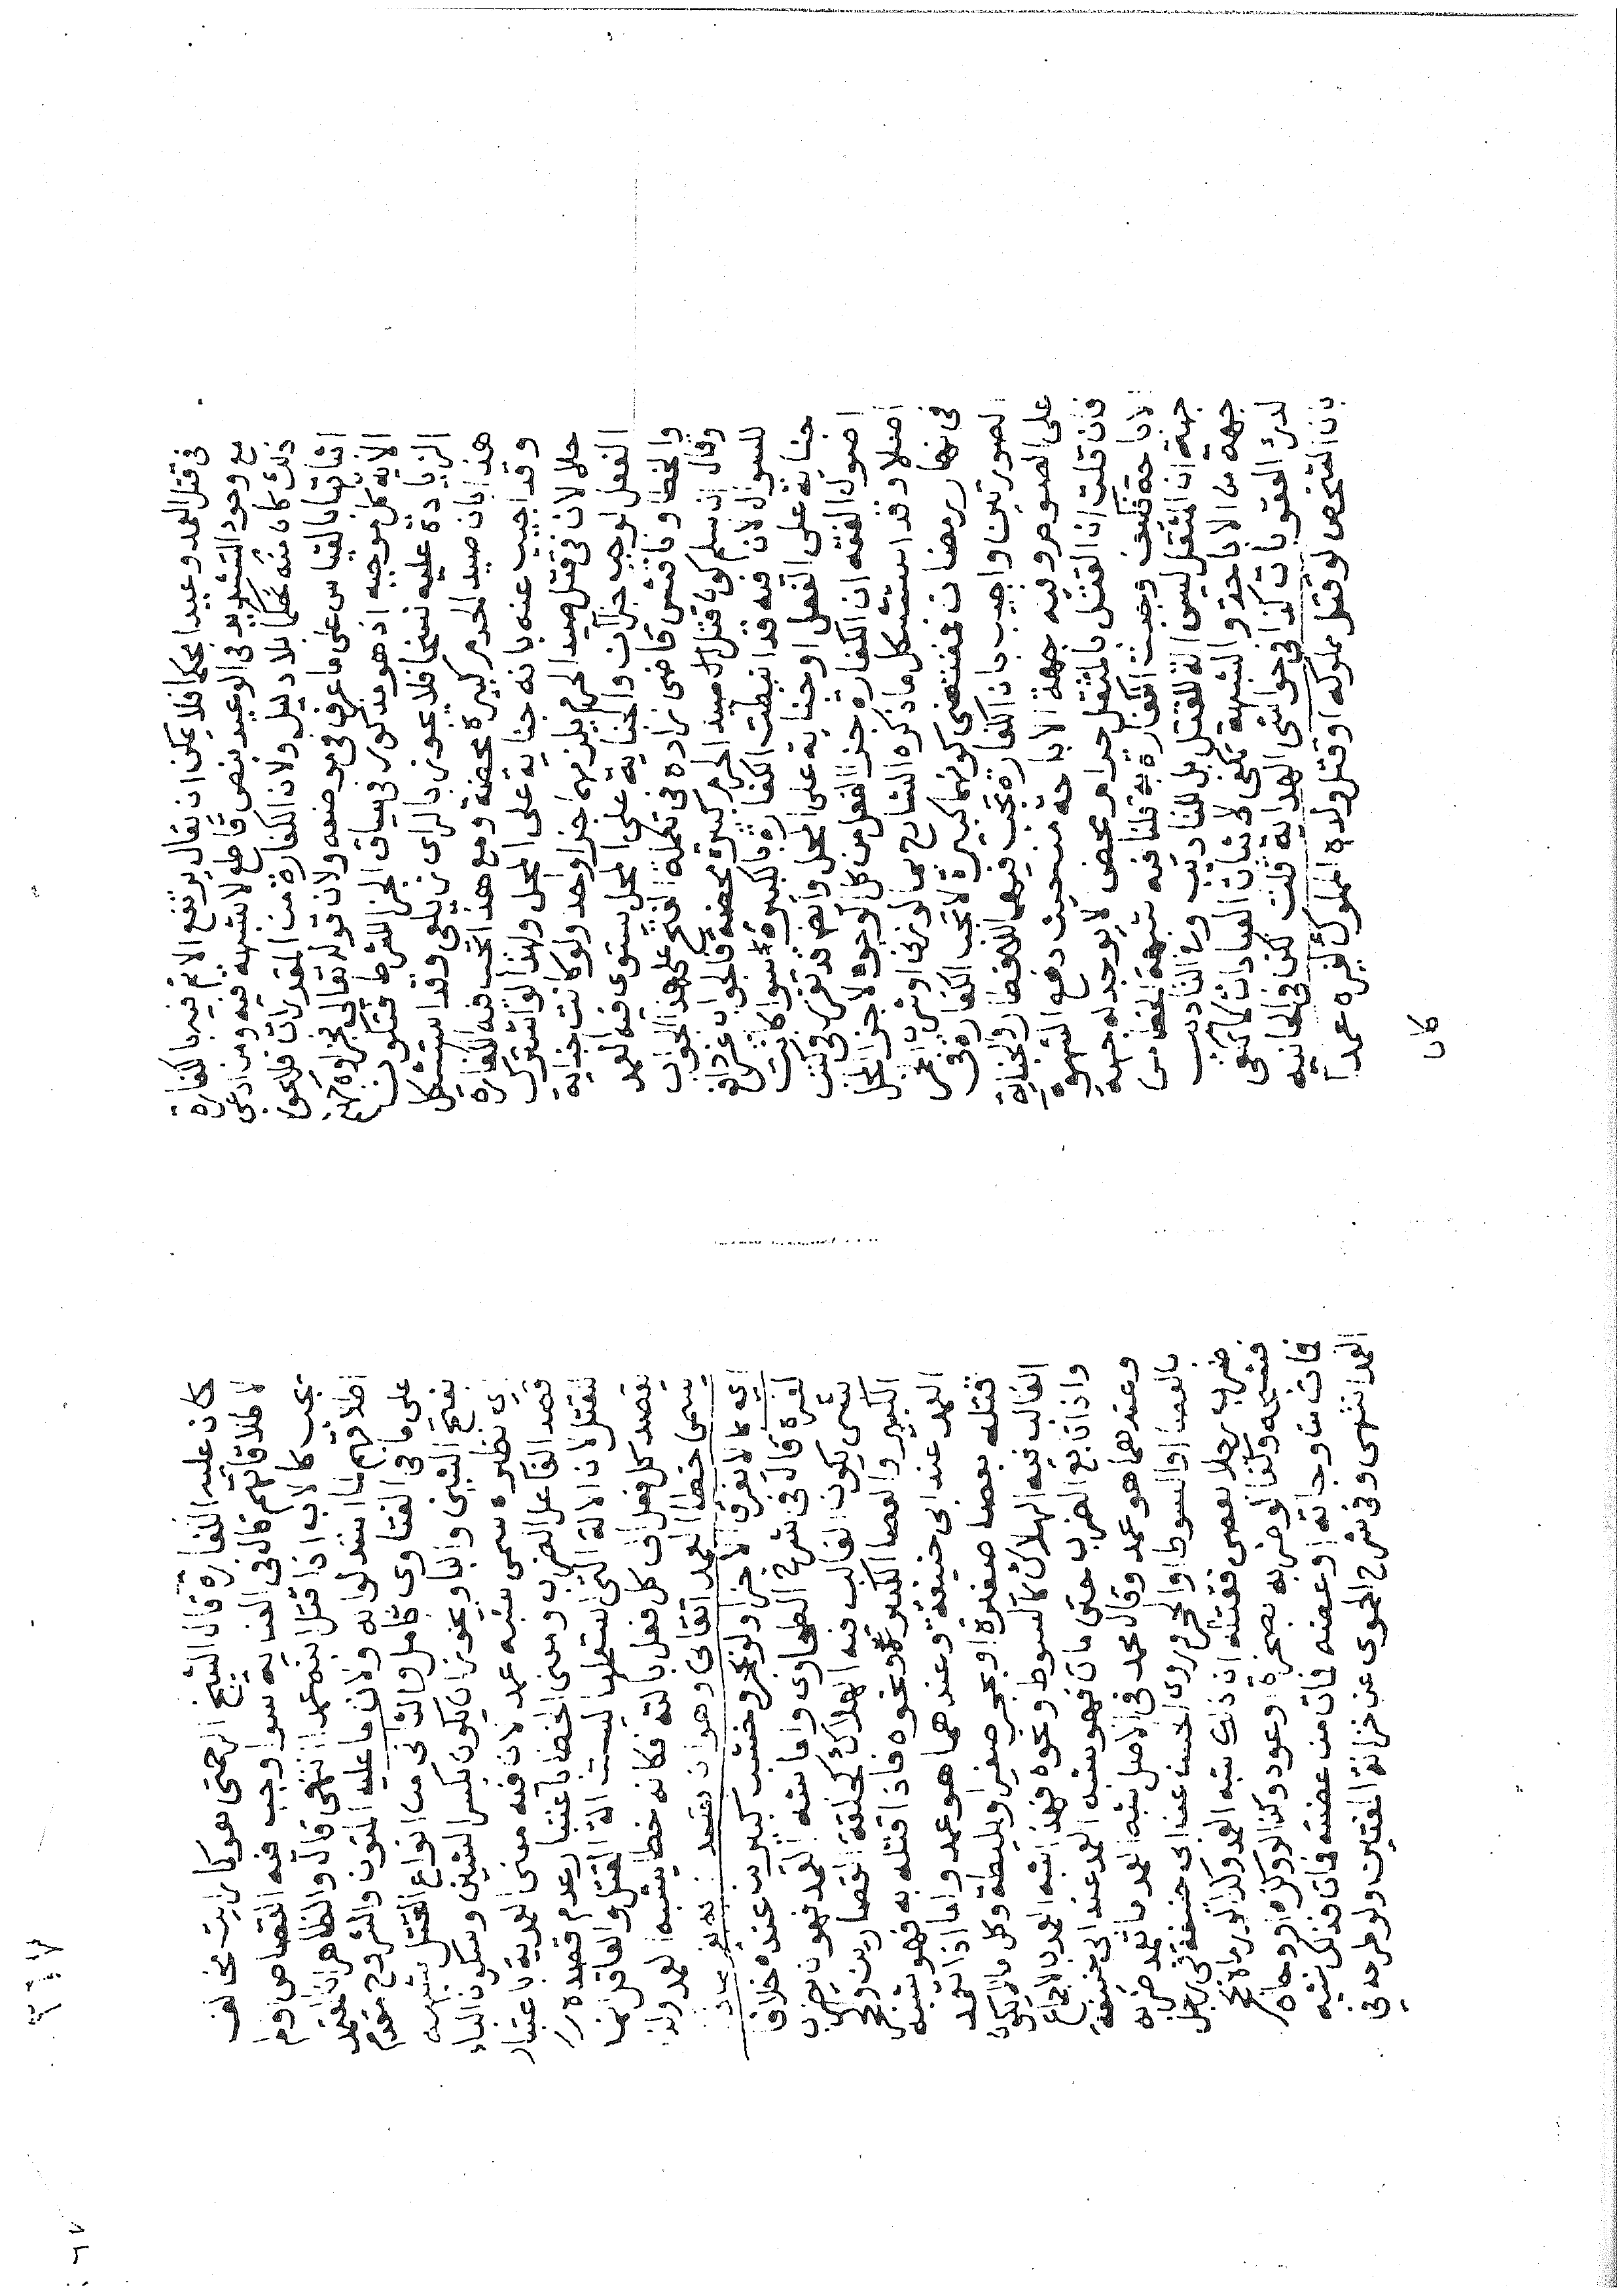 في قتل العمد وعيدا محكما فلا يمكن ان يقال يرتفع الاثم فيه بالكفارة
مع وجود التشديد في الوعيد بنص قاطع لا شبهه فيه ومن ادعى
ذلك كان منه تحكما بلا دليل ولان الكفارة من المقدرات فلا يجوز
اثباتها بالقياس على ما عرف في موضعه ولان قوله تعالى فجزاوه جهنم
الاية كل موجبه اذ هو مذكور في سياق الجزا للشرط فتكون
الزيادة عليه نسخا فلا يجوز بالراى زيلعي وقد استشكل
هذا بان صيد الحرم كبيرة محضة ومع هذا تجب فيه الكفارة
وقد اجيب عنه بانه جناية على المحل ولهذا لو اشترك
حلالان في قتل صيد الحرم يلزمهما جزا واحد ولو كانت جناية
الفعل لوجب جزآن والجناية على المحل يستوي فيه العمد
والخطا وناقش قاضي زاده في تكملة الفتح على هذا الجواب
وقال ان سلم كون قتل صيد الحرم كبيرة محضة فالجواب غير دافع
للسوال لان فيه قد انيطت الكفارة بالكبيرة سوا كانت
جناية على الفعل او جناية على المحل وايضا قد تقرر في كتب
اصول الفقه ان الكفارة جزا الفعل من كل الوجوه لا جزا المحل
اصلا وقد استشكل ما ذكره الشارح بما لو زنى او شرب الخمر
في نهار رمضان فمقتضى كونهما كبيرة لا تجب الكفارة في
الصورتين واجيب بان الكفارة تجب فيهما للافطار والجناية
على الصوم وفيه جهة الاباحة من حيث دفع الشهوة
فان قلت ان القتل بالمثقل حرام محض لا يوجد له جهة
الاباحة فكيف وجبت الكفارة به قلنا فيه شبهة الخطا من
جهة ان المثقل ليس الة للقتل بل للتاديب وفي التاديب
جهة من الاباحة والشبهة تكفي لاثبات العبادات كما تكفي
لدرء العقوبات كذا في حواشي الهداية قلت لكن في الخانية
بان الشخص لو قتل مملوكه او قتل ولده المملوك لغيره عمدا
كان
كان عليه الكفارة قال الشيخ الرحمتي هو كما رايت مخالف
لاطلاقاتهم قال في العنايه سوا وجب فيه القصاص او لم
يجب كالاب اذا قتل ابنه عمدا انتهى قال والظاهر ان المعتمد
اطلاقهم لما استدلوا به ولان ما عليه المتون والشروح مقدم
على ما في الفتاوى تامل والثاني من انواع القتل شبهه
بفتح الشين والبا ويجوز ان يكون بكسر الشين وسكون الباء
اي نظيره سمي شبه عمد لان فيه معنى العمدية باعتبار
قصد الفاعل الضرب ومعنى الخطا باعتبار عدم قصده
للقتل لان الالة التي استعملها ليست الة القتل والعاقل انما
يقصد كل فعل اي كل فعل بالته فكانه خطا يشبه العمد ولذا
يسمى خطا العمد اتقاني وهو ان يقصد ضربه بغير ما ذكر
اي بما لا يفرق الاجزا ولو بحجر وخشب كبيرين عنده خلافا
لغيره قال في شرح الطحاوي واما شبه العمد فهو ان يضرب
بشي يكون الغالب فيه الهلاك كمدقة القصارين والحجر
الكبير والعصا الكبيرة ونحوه فاذا قتله به فهو شبه
العمد عند ابي حنيفة وعندهما هو عمد واما اذا تعمد
فقتله بعصا صغيرة او بحجر صغير او بليطة وكل ما لا يكون
الغالب فيه الهلاك كالسوط ونحوه فهذا شبه العمد بالاجماع
واذا تابع الضرب حتى مات فهو شبه العمد عند ابي حنيفة
وعندهما هو عمد وقال محمد في الاصل شبه العمد ما تعمد ضربه
بالعصا او السوط او الحجر وروى الحسن عن ابي حنيفة في رجل
ضرب رجلا بعصى فقتله ان ذلك شبه العمد وكذا لو رماه بحجر
فشجه وكذا لو ضربه بصخرة او عود وكذا لو وكزه او وجاه
فمات من وجاته او عضه فمات من عضته فمات فذلك شبه
العمد انتهى وفي شرح الحموي عن خزانة المفتين ولو طرحه في